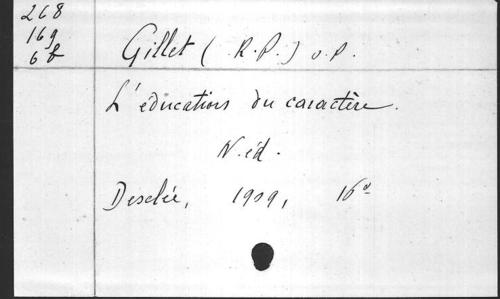 268
169
6 b
Gillet (R.P.) o.p.
L'éducation du caractère.
N. éd.
Desclée, 1909, 16°